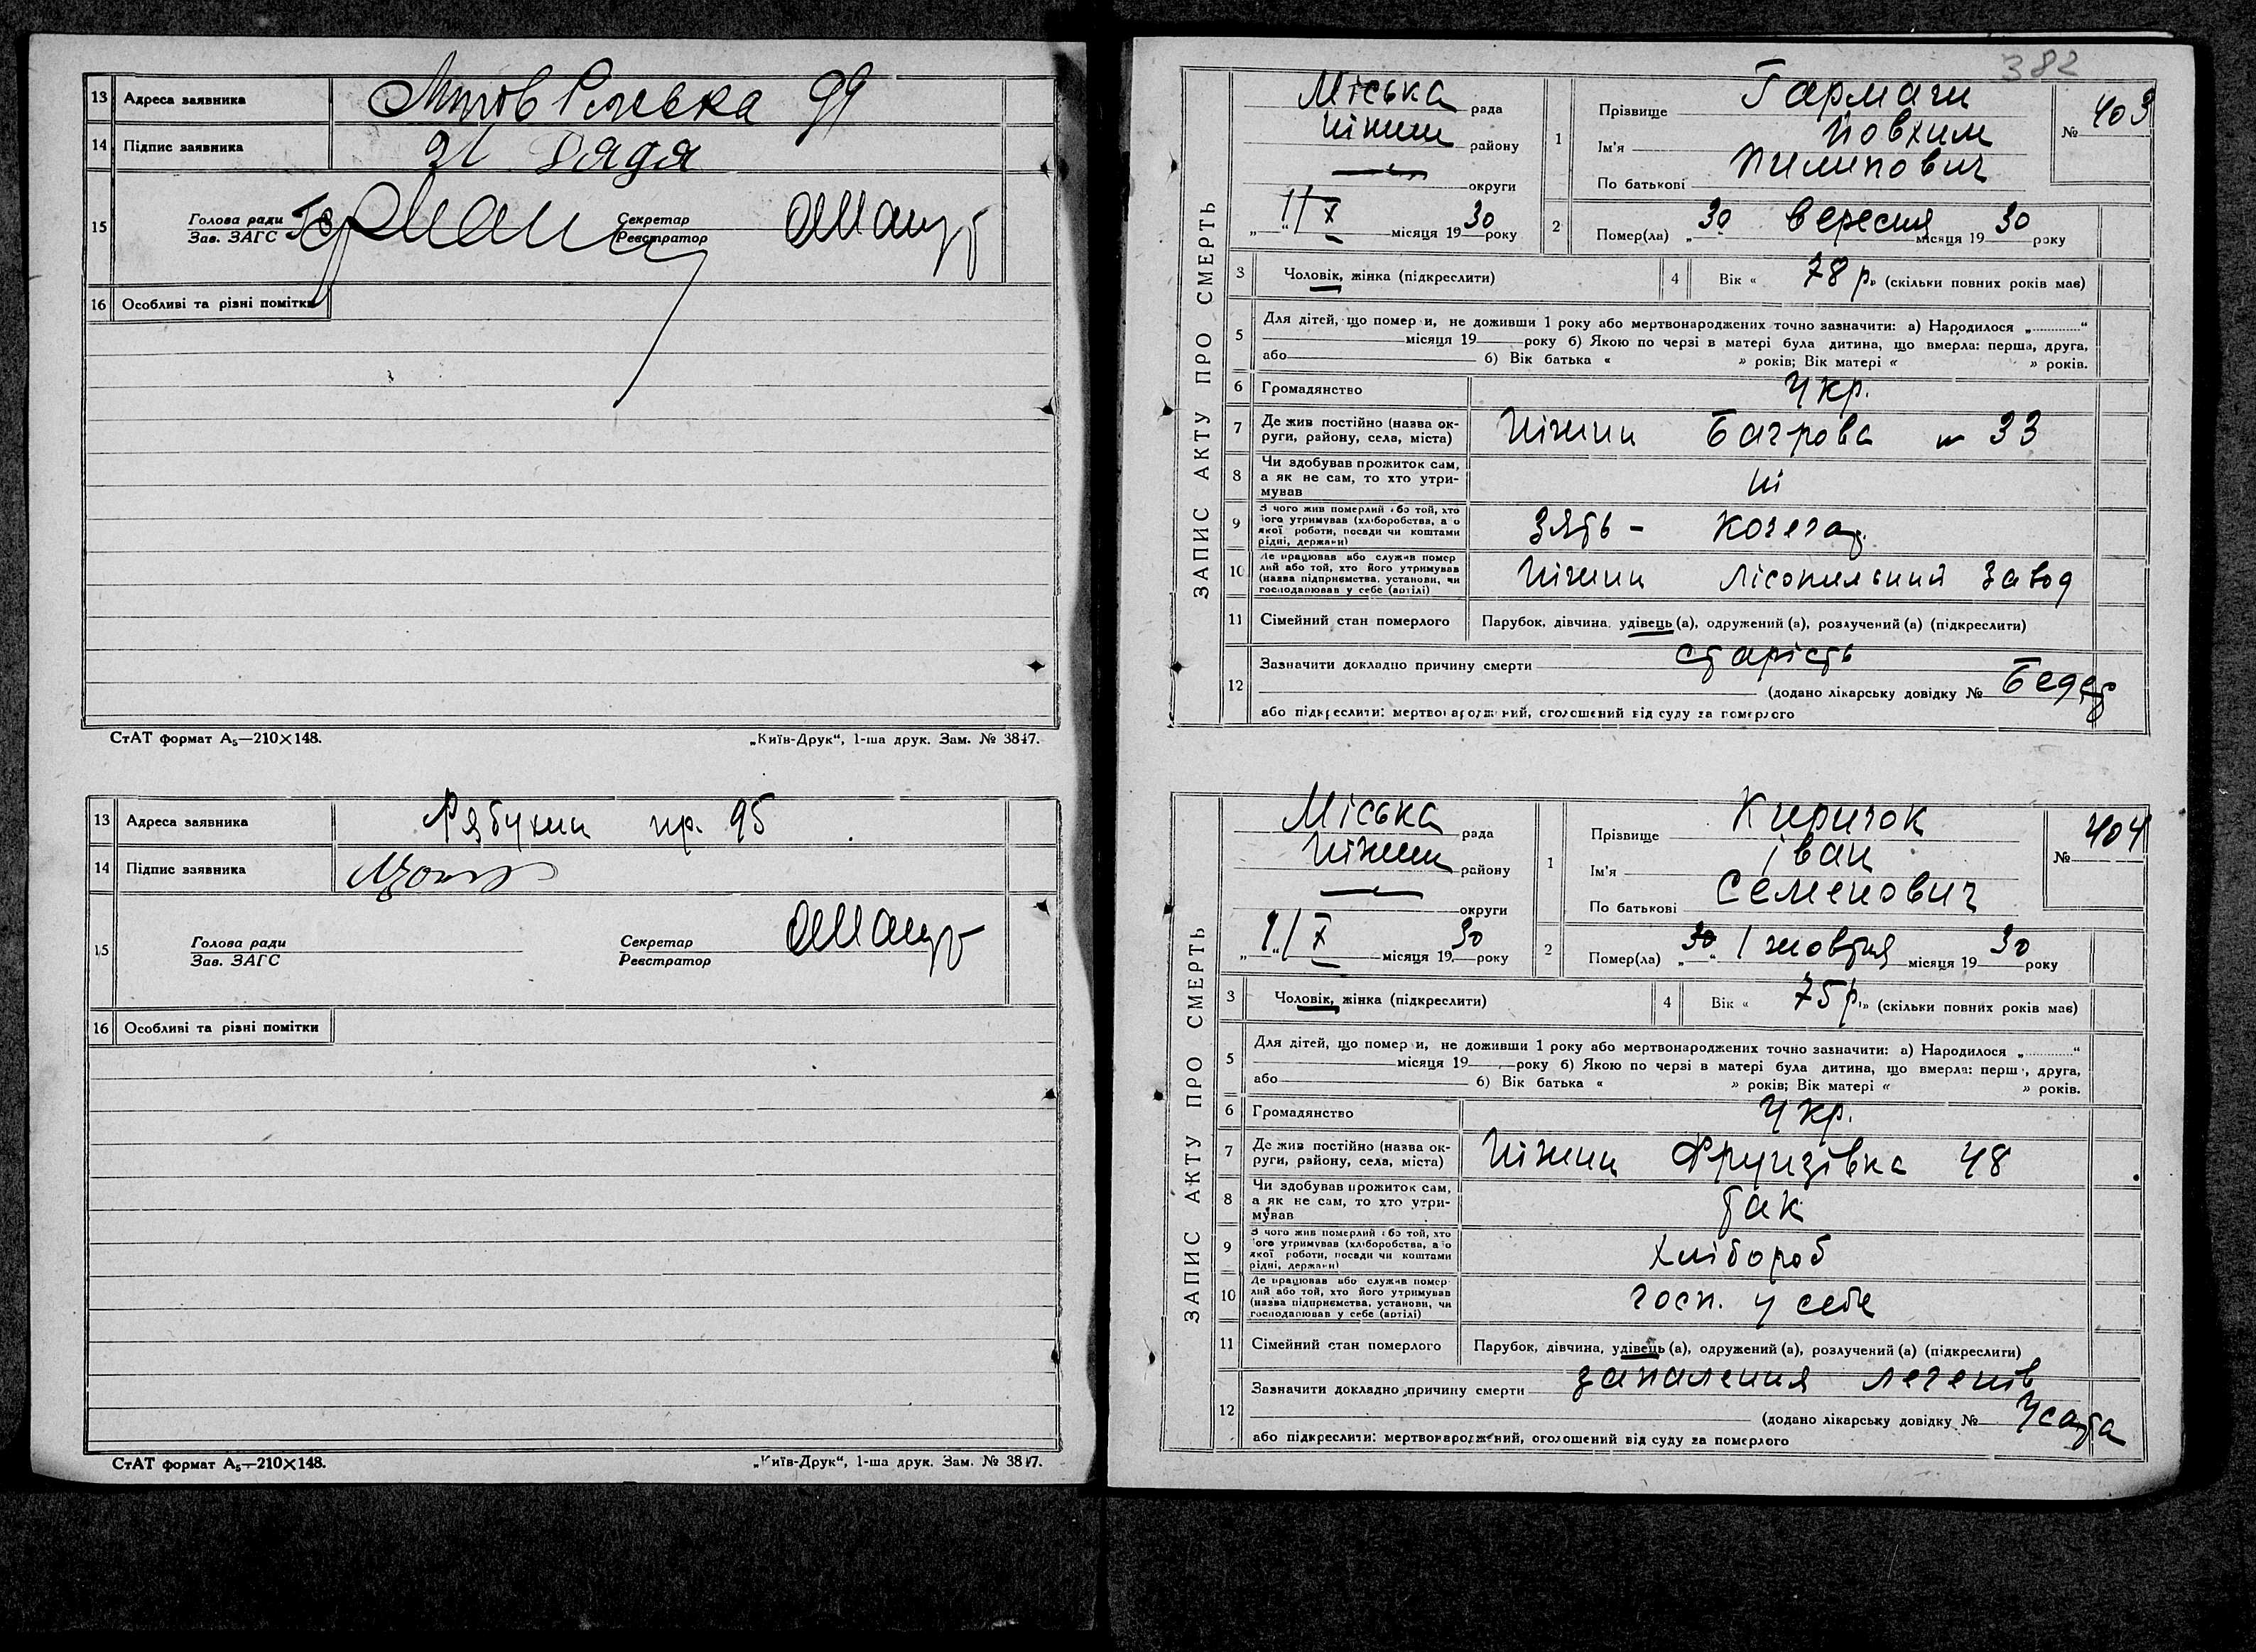 13 Адреса заявника 99
14 Підпис заявника
15 Голова ради
Зав. ЗАГС
Секретар
Реєстратор
16 Особливі та різні помітки
СтАТ формат А₅—210×148.
„Київ-Друк“, 1-ша друк. Зам. № 3847.
13 Адреса заявника пр. 95
14 Підпис заявника
15 Голова ради
Зав. ЗАГС
Секретар
Реєстратор
16 Особливі та різні помітки
СтАТ формат А₅—210×148.
„Київ-Друк“, 1-ша друк. Зам. № 3847.
382
ЗАПИС АКТУ ПРО СМЕРТЬ
Міська рада
Ніжин району
округи
„1“ X місяця 1930 року
1 Прізвище Гармаш
Ім'я Йовхим
По батькові Пилипович
№ 403
2 Помер(ла) „30“ вересня місяця 1930 року
3 Чоловік, жінка (підкреслити)
4 Вік « 78 р. » (скільки повних років має)
5 Для дітей, що померли, не доживши 1 року або мертвонароджених точно зазначити: а) Народилося „............“
місяця 19 року б) Якою по черзі в матері була дитина, що вмерла: перша, друга,
або б) Вік батька « » років; Вік матері « » років.
6 Громадянство Укр.
7 Де жив постійно (назва округи, району, села, міста) Ніжин Багрова № 33
8 Чи здобував прожиток сам, а як не сам, то хто утримував ні
9 З чого жив померлий або той, хто його утримував (хліборобства, або якої роботи, посади чи коштами рідні, держави) Зять - кочегар.
10 Де працював або служив померлий або той, хто його утримував (назва підприємства, установи, чи господарював у себе (артілі) Ніжин Лісопильний завод
11 Сімейний стан померлого Парубок, дівчина, удівець (а), одружений (а), розлучений (а) (підкреслити)
12 Зазначити докладно причину смерти старість
(додано лікарську довідку №
або підкреслити: мертвонароджений, оголошений від суду за померлого
ЗАПИС АКТУ ПРО СМЕРТЬ
Міська рада
Ніжин району
округи
„1“ X місяця 1930 року
1 Прізвище Киричок
Ім'я Іван
По батькові Семенович
№ 404
2 Помер(ла) „30“ 1 жовтня місяця 1930 року
3 Чоловік, жінка (підкреслити)
4 Вік « 75 р. » (скільки повних років має)
5 Для дітей, що померли, не доживши 1 року або мертвонароджених точно зазначити: а) Народилося „............“
місяця 19 року б) Якою по черзі в матері була дитина, що вмерла: перша, друга,
або б) Вік батька « » років; Вік матері « » років.
6 Громадянство Укр.
7 Де жив постійно (назва округи, району, села, міста) Ніжин Фрунзівка 48
8 Чи здобував прожиток сам, а як не сам, то хто утримував так
9 З чого жив померлий або той, хто його утримував (хліборобства, або якої роботи, посади чи коштами рідні, держави) Хлібороб
10 Де працював або служив померлий або той, хто його утримував (назва підприємства, установи, чи господарював у себе (артілі) госп. у себе
11 Сімейний стан померлого Парубок, дівчина, удівець (а), одружений (а), розлучений (а) (підкреслити)
12 Зазначити докладно причину смерти запалення легенів
(додано лікарську довідку № Усата
або підкреслити: мертвонароджений, оголошений від суду за померлого